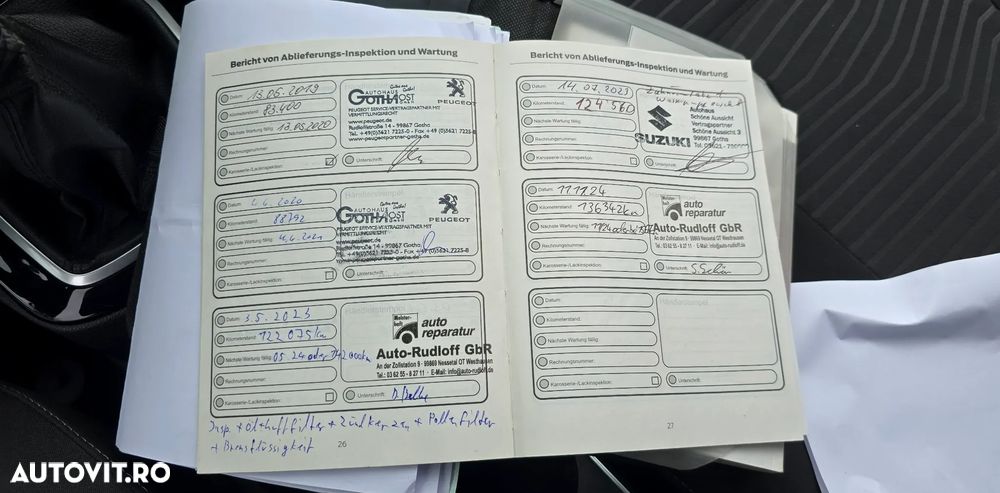 Bericht von Ablieferungs-Inspektion und Wartung
Datum: 13.05.2019
Kilometerstand: 83.400
Nächste Wartung fällig: 13.05.2020
Rechnungsnummer:
Karosserie-/Lackinspektion:
Unterschrift:
AUTOHAUS
GOTHA OST
PEUGEOT
PEUGEOT SERVICE-VERTRAGSPARTNER MIT
VERMITTLUNGSRECHT
www.peugeot.de
Rudloffstraße 14 - 99867 Gotha
Tel. +49 (0)3621 7225-0 - Fax +49 (0)3621 7225-8
www.peugeotpartner-gotha.de
Datum: 2.6.2020
Kilometerstand: 88792
Nächste Wartung fällig:
Rechnungsnummer:
Karosserie-/Lackinspektion:
Unterschrift:
AUTOHAUS
GOTHA OST
PEUGEOT
PEUGEOT SERVICE-VERTRAGSPARTNER MIT
VERMITTLUNGSRECHT
www.peugeot.de
Rudloffstraße 14 - 99867 Gotha
Datum: 3.5.2023
Kilometerstand: 122 075 km
Nächste Wartung fällig: 05.24 oder 142 000 km
Rechnungsnummer:
Karosserie-/Lackinspektion:
Unterschrift:
Meisterhaft
auto
reparatur
Auto-Rudloff GbR
An der Zollstation 9 · 99869 Nessetal OT Westhausen
Tel.: 03 62 55 - 8 27 11 · E-Mail: info@auto-rudloff.de
Insp. + Öl + Luftfilter + Zündkerzen + Pollenfilter
+ Bremsflüssigkeit
26
Bericht von Ablieferungs-Inspektion und Wartung
Datum: 14.07.2023
Kilometerstand: 124 560
Nächste Wartung fällig:
Rechnungsnummer:
Karosserie-/Lackinspektion:
Unterschrift:
SUZUKI
Autohaus
Schöne Aussicht
Vertragspartner
Schöne Aussicht 3
99867 Gotha
Datum: 11.11.24
Kilometerstand: 136342 km
Nächste Wartung fällig:
Rechnungsnummer:
Karosserie-/Lackinspektion:
Unterschrift:
Meisterhaft
auto
reparatur
Auto-Rudloff GbR
An der Zollstation 9 · 99869 Nessetal OT Westhausen
Tel.: 03 62 55 - 8 27 11 · E-Mail: info@auto-rudloff.de
Datum:
Kilometerstand:
Nächste Wartung fällig:
Rechnungsnummer:
Karosserie-/Lackinspektion:
Unterschrift:
Händlerstempel
27
AUTOVIT.RO